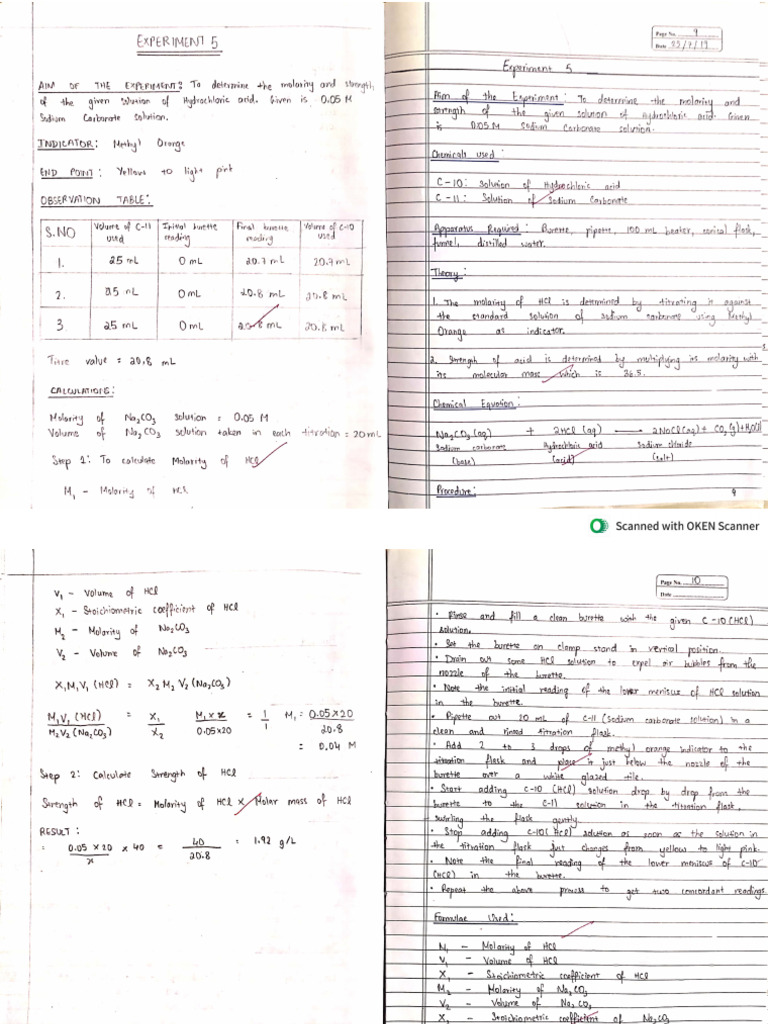 EXPERIMENT 5
AIM OF THE EXPERIMENT: To determine the molarity and strength
of the given solution of Hydrochloric acid. Given is 0.05 M
Sodium Carbonate solution.
INDICATOR: Methyl Orange
END POINT: Yellow to light pink
OBSERVATION TABLE:
S.NO | Volume of C-11 used | Initial burette reading | Final burette reading | Volume of C-10 used
1. | 25 mL | 0 mL | 20.7 mL | 20.7 mL
2. | 25 mL | 0 mL | 20.8 mL | 20.8 mL
3. | 25 mL | 0 mL | 20.8 mL | 20.8 mL
Titre value = 20.8 mL
CALCULATIONS:
Molarity of Na2CO3 solution = 0.05 M
Volume of Na2CO3 solution taken in each titration = 20 mL
Step 1: To calculate Molarity of HCl
M1 - Molarity of HCl
Page No. 9
Date 22/7/19
Experiment 5
Aim of the Experiment: To determine the molarity and
strength of the given solution of Hydrochloric acid. Given
is 0.05 M Sodium Carbonate solution.
Chemicals used:
C-10: Solution of Hydrochloric acid
C-11: Solution of Sodium Carbonate
Apparatus Required: Burette, pipette, 100 mL beaker, conical flask,
funnel, distilled water.
Theory:
1. The molarity of HCl is determined by titrating it against
the standard solution of sodium carbonate using Methyl
Orange as indicator.
2. Strength of acid is determined by multiplying its molarity with
its molecular mass which is 36.5.
Chemical Equation:
Na2CO3 (aq) + 2HCl (aq) → 2NaCl(aq) + CO2(g) + H2O(l)
Sodium carbonate Hydrochloric acid Sodium chloride
(base) (acid) (salt)
Procedure:
9
Scanned with OKEN Scanner
V1 - Volume of HCl
X1 - Stoichiometric coefficient of HCl
M2 - Molarity of Na2CO3
V2 - Volume of Na2CO3
X1M1V1 (HCl) = X2M2V2 (Na2CO3)
M1V1 (HCl) / M2V2 (Na2CO3) = X1 / X2 M1 x x / 0.05x20 = 1/1 M1 = 0.05x20 / 20.8
= 0.04 M
Step 2: Calculate Strength of HCl
Strength of HCl = Molarity of HCl x Molar mass of HCl
RESULT:
= 0.05 x 20 / x x 40 = 40 / 20.8 = 1.92 g/L
Page No. 10
Date
• Rinse and fill a clean burette with the given C-10 (HCl)
solution.
• Set the burette on clamp stand in vertical position.
• Drain out some HCl solution to expel air bubbles from the
nozzle of the burette.
• Note the initial reading of the lower meniscus of HCl solution
in the burette.
• Pipette out 20 mL of C-11 (Sodium carbonate solution) in a
clean and rinsed titration flask.
• Add 2 to 3 drops of methyl orange indicator to the
titration flask and place it just below the nozzle of the
burette over a white glazed tile.
• Start adding C-10 (HCl) solution drop by drop from the
burette to the C-11 solution in the titration flask,
swirling the flask gently.
• Stop adding C-10 (HCl) solution as soon as the solution in
the titration flask just changes from yellow to light pink.
• Note the final reading of the lower meniscus of C-10
(HCl) in the burette.
• Repeat the above process to get two concordant readings.
Formulae Used:
M1 - Molarity of HCl
V1 - Volume of HCl
X1 - Stoichiometric coefficient of HCl
M2 - Molarity of Na2CO3
V2 - Volume of Na2CO3
X1 - Stoichiometric coefficient of Na2CO3